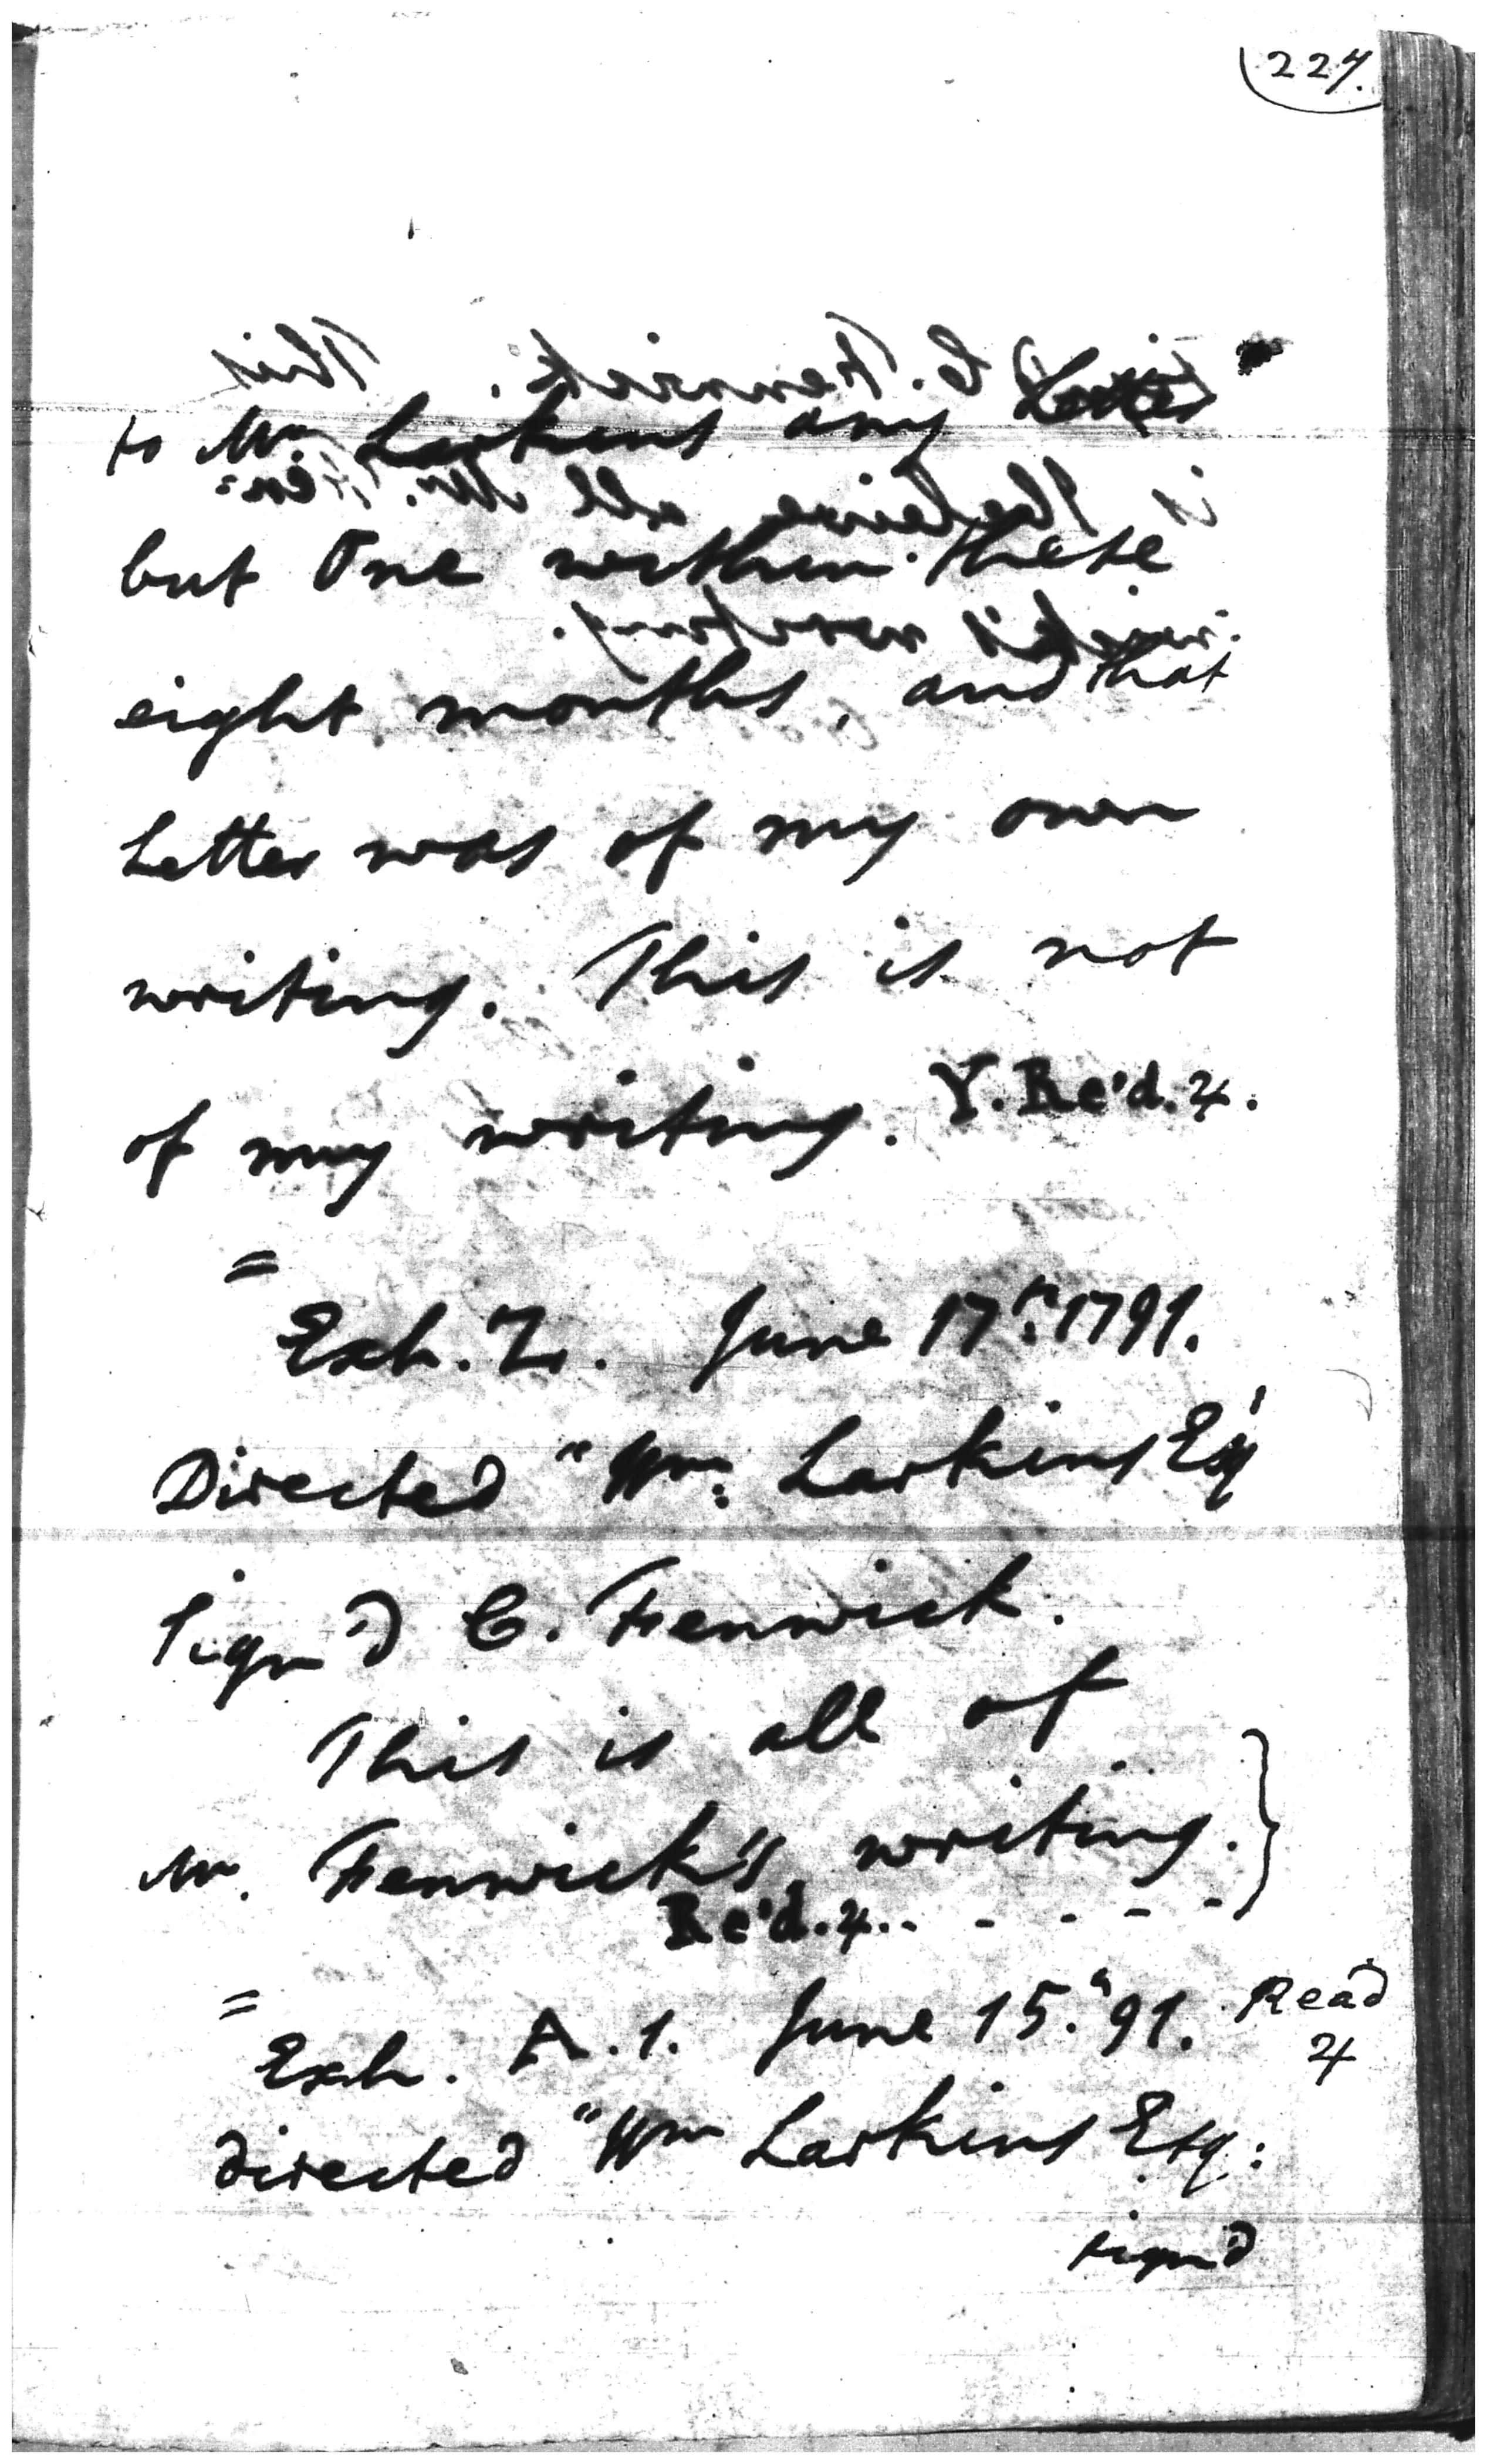 227.
to Mr. Larkins any Letter
but One within these
eight months, and that
Letter was of my own
writing. This is not
of my writing. Y. Re'd. 4.
=
Exh. Z. June 17th. 1791.
Directed "Wm: Larkins Esq'
Sign'd C. Fenwick.
This is all of
Mr. Fenwick's writing.
Re'd. 4. - - - - -
=
Exh. A.1. June 15.th 91. Read
4
directed "Wm Larkins Esq:
sign'd